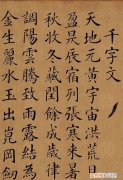 千字文
天地元黃宇宙洪荒日
盈昃辰宿列張寒來暑
秋收冬藏閏餘成歲律
調陽雲騰致雨露結為
金生麗水玉出崑岡劍